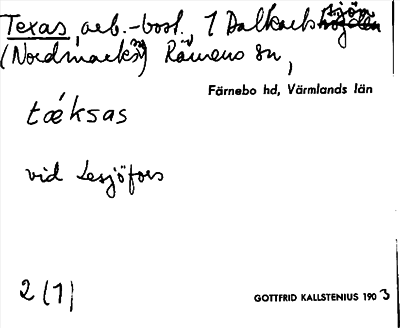 Texas, arb.-bost., 1 Dalkarlssjön
(Nordmarks) Rämens sn,
Färnebo hd, Värmlands län
tǽksas
vid Lesjöfors
2 (1)
GOTTFRID KALLSTENIUS 1903